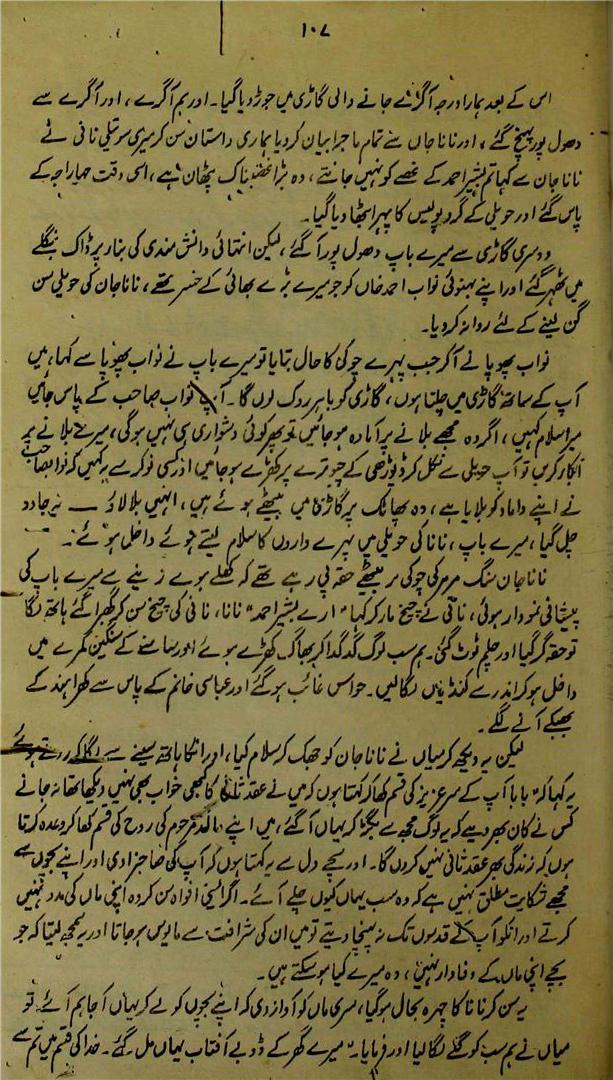 ۱۰۷
اس کے بعد ہمارا درجہ آگرے جانے والی گاڑی میں جوڑ دیا گیا۔ اور ہم آگرے، اور آگرے سے
دھول پور پہنچ گئے، اور نانا جان نے تمام ماجرا بیان کر دیا ہماری داستان سن کر میری سوتیلی نانی نے
نانا جان سے کہا تم بشیر احمد کے غصے کو نہیں جانتے، وہ بڑا غضبناک پٹھان ہے، اسی وقت مہاراجہ کے
پاس گئے اور حویلی کے گرد پولیس کا پہرا بٹھا دیا گیا۔
دوسری گاڑی سے میرے باپ دھول پور آ گئے، لیکن انتہائی دانش مندی کی بنا پر ڈاک بنگلے
میں ٹھہر گئے اور اپنے بہنوئی نواب احمد خاں کو جو میرے بڑے بھائی کے خسر تھے، نانا جان کی حویلی سن
گن لینے کے لئے روانہ کر دیا۔
نواب پھوپا نے آ کر جب پہرے چوکی کا حال بتایا تو میرے باپ نے نواب پھوپا سے کہا، میں
آپ کے ساتھ گاڑی میں چلتا ہوں، گاڑی کو باہر روک لوں گا۔ آپ نواب صاحب کے پاس جائیں
میرا سلام کہیں، اگر وہ مجھے بلانے پر آمادہ ہو جائیں تو پھر کوئی دشواری ہی نہیں ہوگی، میرے بلانے پر
انکار کریں تو آپ حویلی سے نکل کر ڈیوڑھی کے چبوترے پر کھڑے ہو جائیں اور کسی نوکر سے یہ کہیں کہ نواب صاحب
نے اپنے داماد کو بلایا ہے، وہ پھاٹک پر گاڑی میں بیٹھے ہوئے ہیں، انہیں بلا لاؤ ــ یہ جادو
چل گیا، میرے باپ، نانا کی حویلی میں پہرے داروں کا سلام لیتے ہوئے داخل ہوئے۔
نانا جان سنگ مرمر کی چوکی پر بیٹھے حقہ پی رہے تھے کہ کھلے ہوئے زینے سے میرے باپ کی
پیشانی نمودار ہوئی، نانی نے چیخ مار کر کہا "ارے بشیر احمد" نانا، نانی کی چیخ سن کر گھبرا گئے ہاتھ لگا
تو حقہ گر گیا اور چلم ٹوٹ گئی۔ ہم سب لوگ گدگدا کر بھاگ کھڑے ہوئے اور سامنے کے سنگین کمرے میں
داخل ہو کر اندر سے کنڈیاں لگا لیں۔ حواس غائب ہو گئے اور عباسی خانم کے پاس سے کھراہند کے
بھبکے آنے لگے۔
لیکن یہ دیکھ کر میاں نے نانا جان کو جھک کر سلام کیا، اور انکا ہاتھ سینے سے لگا کے روتے ہوئے
یہ کہا کہ "بابا آپ کے سر عزیز کی قسم کھا کر کہتا ہوں کہ میں نے عقد ثانی کا کبھی خواب بھی نہیں دیکھا تھا نہ جانے
کس نے کان بھر دیے کہ یہ لوگ مجھ سے بگڑ کر یہاں آ گئے، میں اپنے والد مرحوم کی روح کی قسم کھا کر وعدہ کرتا
ہوں کہ زندگی بھر عقد ثانی نہیں کروں گا۔ اور سچے دل سے یہ کہتا ہوں کہ آپ کی صاحبزادی اور اپنے بچوں سے
مجھے شکایت مطلق نہیں ہے کہ وہ سب یہاں کیوں چلے آئے۔ اگر ایسی افواہ سن کر وہ اپنی ماں کی مدد نہیں
کرتے اور انکو آپ کے قدموں تک نہ پہنچا دیتے تو میں ان کی شرافت سے مایوس ہو جاتا اور یہ سمجھ لیتا کہ جو
بچے اپنی ماں کے وفادار نہیں، وہ میرے کیا ہو سکتے ہیں۔
یہ سن کر نانا کا چہرہ بحال ہو گیا، میری ماں کو آواز دی کہ اپنے بچوں کو لے کر یہاں آ جا ہم آئے تو
میاں نے ہم سب کو گلے لگا لیا اور فرمایا۔ "میرے گھر کے ڈوبے آفتاب یہاں مل گئے۔ خدا کی قسم میں تم سے